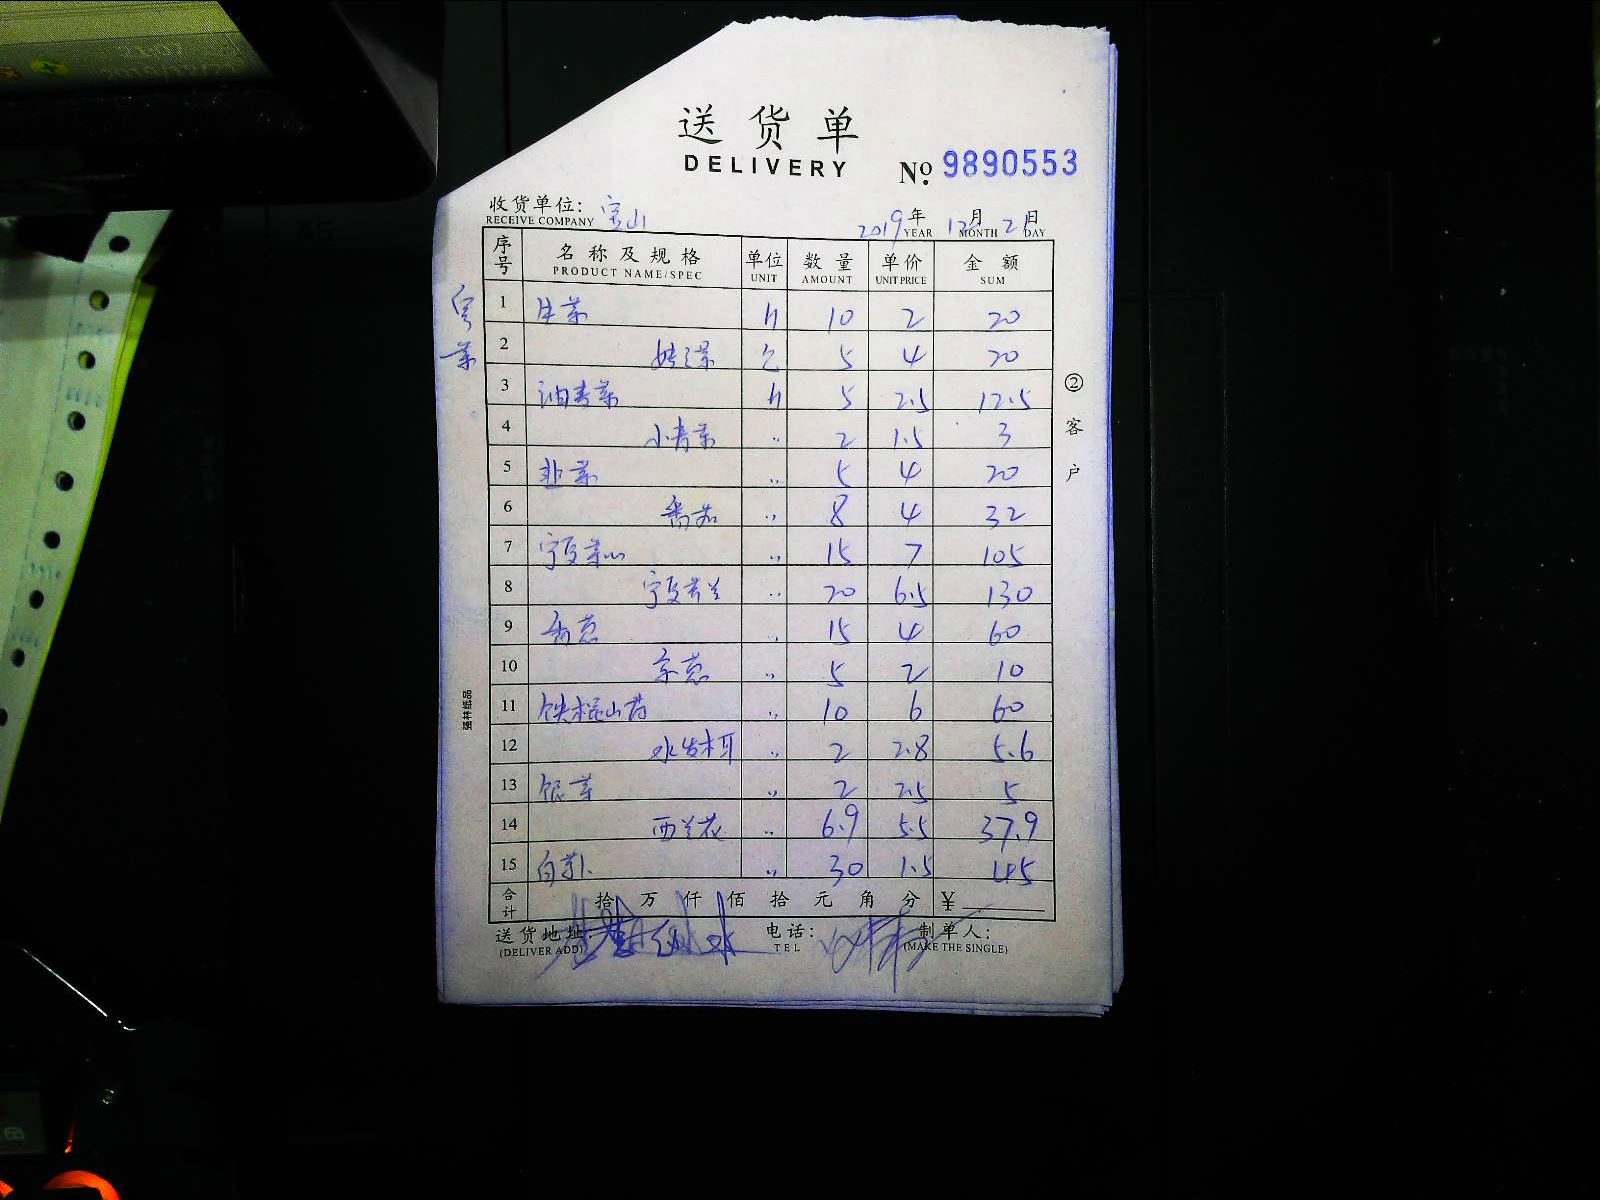 送货单
DELIVERY
№ 9890553
收货单位: 宝山
RECEIVE COMPANY
2019年 12月 21日
YEAR MONTH DAY
序号 名称及规格 单位 数量 单价 金额
PRODUCT NAME/SPEC UNIT AMOUNT UNIT PRICE SUM
1 生菜 10 2 20
2 5 4 20
3 油麦菜 5 2.5 12.5
4 小青菜 〃 2 1.5 3
5 韭菜 〃 5 4 20
6 番茄 〃 8 4 32
7 宁夏菜心 〃 15 7 105
8 宁夏芥兰 〃 20 6.5 130
9 香葱 〃 15 4 60
10 京葱 〃 5 2 10
11 铁棍山药 〃 10 6 60
12 水发木耳 〃 2 2.8 5.6
13 银芽 〃 2 2.5 5
14 西兰花 〃 6.9 5.5 37.9
15 白萝卜 〃 30 1.5 45
合计 拾 万 仟 佰 拾 元 角 分 ¥
送货地址: 电话: 制单人:
(DELIVER ADD) TEL (MAKE THE SINGLE)
②客户
强林纸品